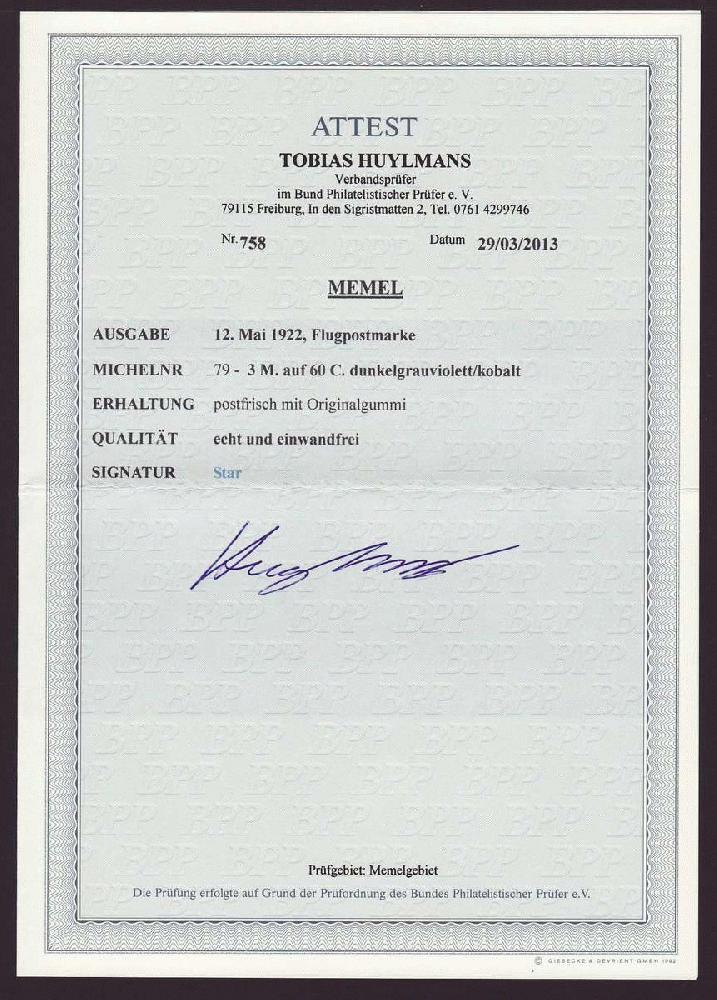 ATTEST
TOBIAS HUYLMANS
Verbandsprüfer
im Bund Philatelistischer Prüfer e. V.
79115 Freiburg, In den Sigristmatten 2, Tel. 0761 4299746
Nr. 758 Datum 29/03/2013
MEMEL
AUSGABE 12. Mai 1922, Flugpostmarke
MICHELNR 79 - 3 M. auf 60 C. dunkelgrauviolett/kobalt
ERHALTUNG postfrisch mit Originalgummi
QUALITÄT echt und einwandfrei
SIGNATUR Star
Prüfgebiet: Memelgebiet
Die Prüfung erfolgte auf Grund der Prüfordnung des Bundes Philatelistischer Prüfer e.V.
© GIESECKE & DEVRIENT GMBH 1992